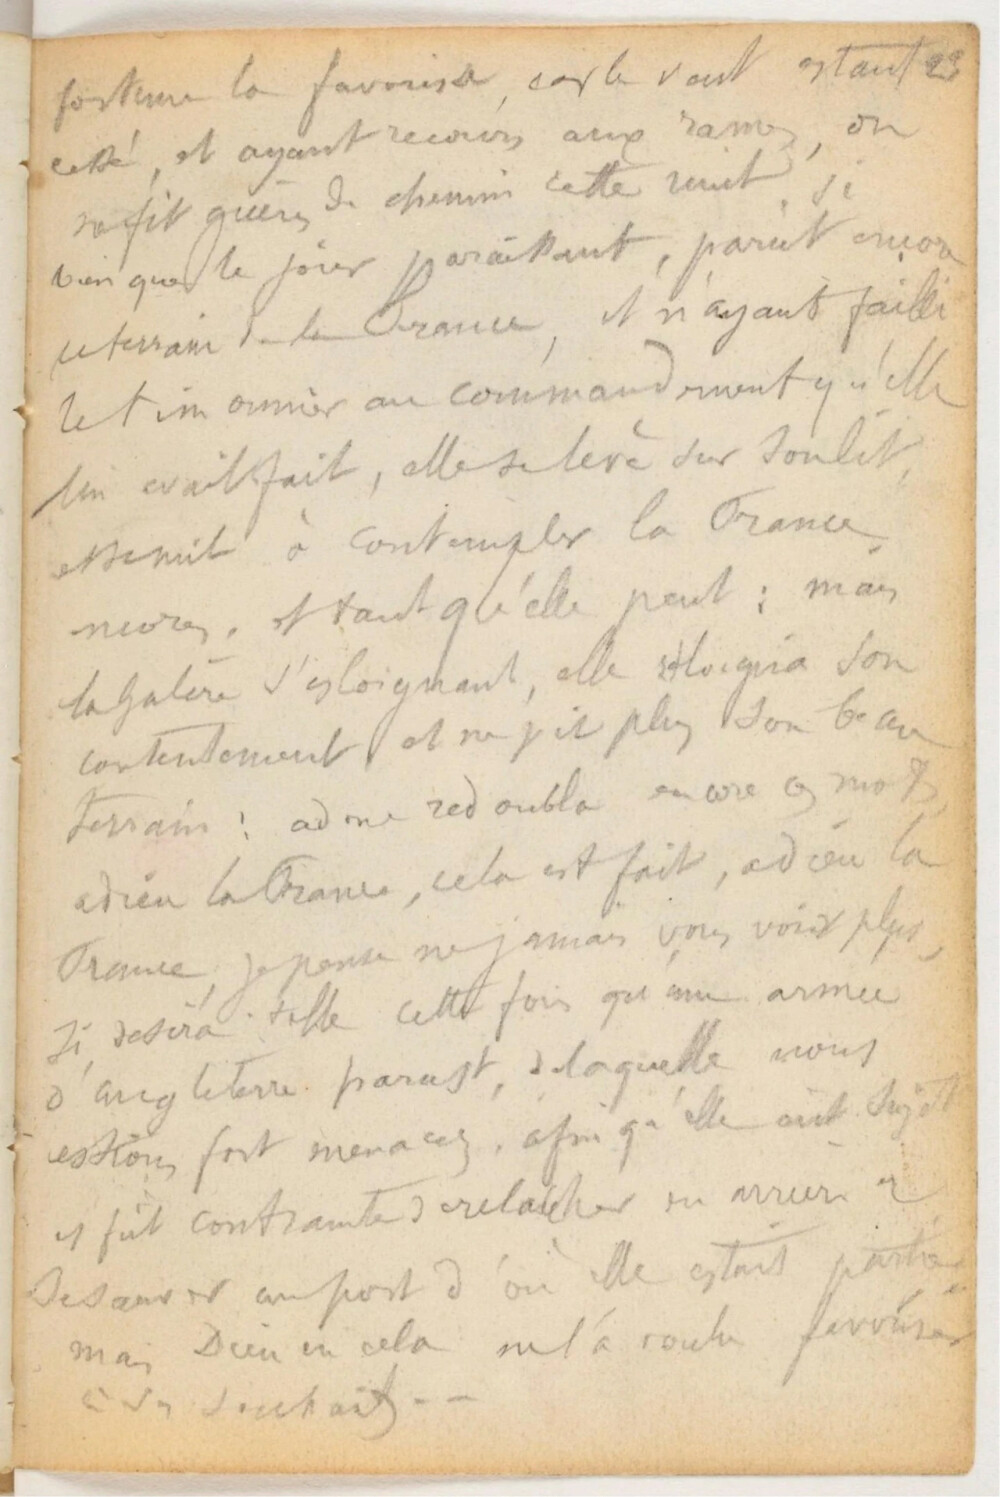 fortune la favorisa, car le vent estant 23
cessé, et ayant recours aux rames, on
ne fit guères de chemin cette nuit, si
bien que le jour paraissant, parut encore
le terrain de la France, et n'ayant failli
le timonnier au commandement qu'elle
lui avait fait, elle se leva sur son lit,
et se mit à contempler la France
encores, et tant qu'elle peut : mais
la galère s'esloignant, elle esloigna son
contentement et ne vit plus son beau
terrain : adonc redoubla encore ces mots,
adieu la France, cela est fait, adieu la
France, je pense ne jamais vous voir plus,
si désira telle cette fois qu'une armée
d'angleterre parust, de laquelle nous
estions fort menacez, afin qu'elle eût sujet
et fût contrainte de relascher en arrière et
se sauver au port d'où elle estait partie
mais Dieu en cela ne l'a voulu favoriser
à ses souhaits - -